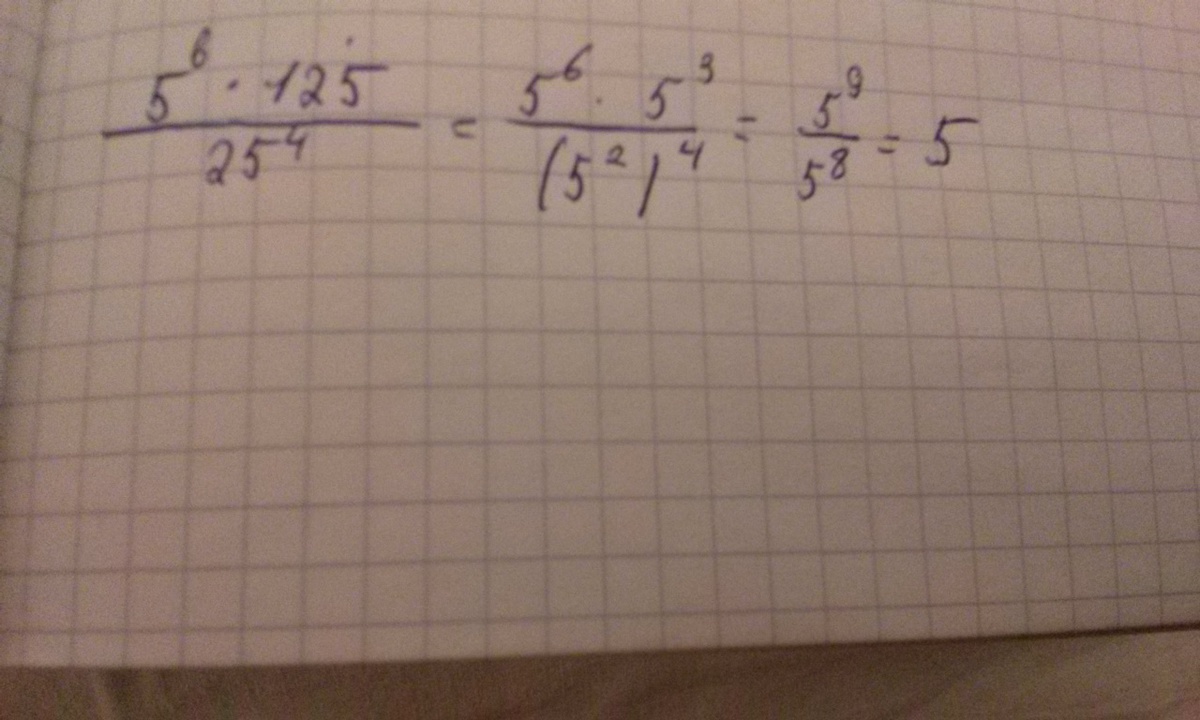 5⁶ · 125 / 25⁴ = 5⁶ · 5³ / (5²)⁴ = 5⁹ / 5⁸ = 5